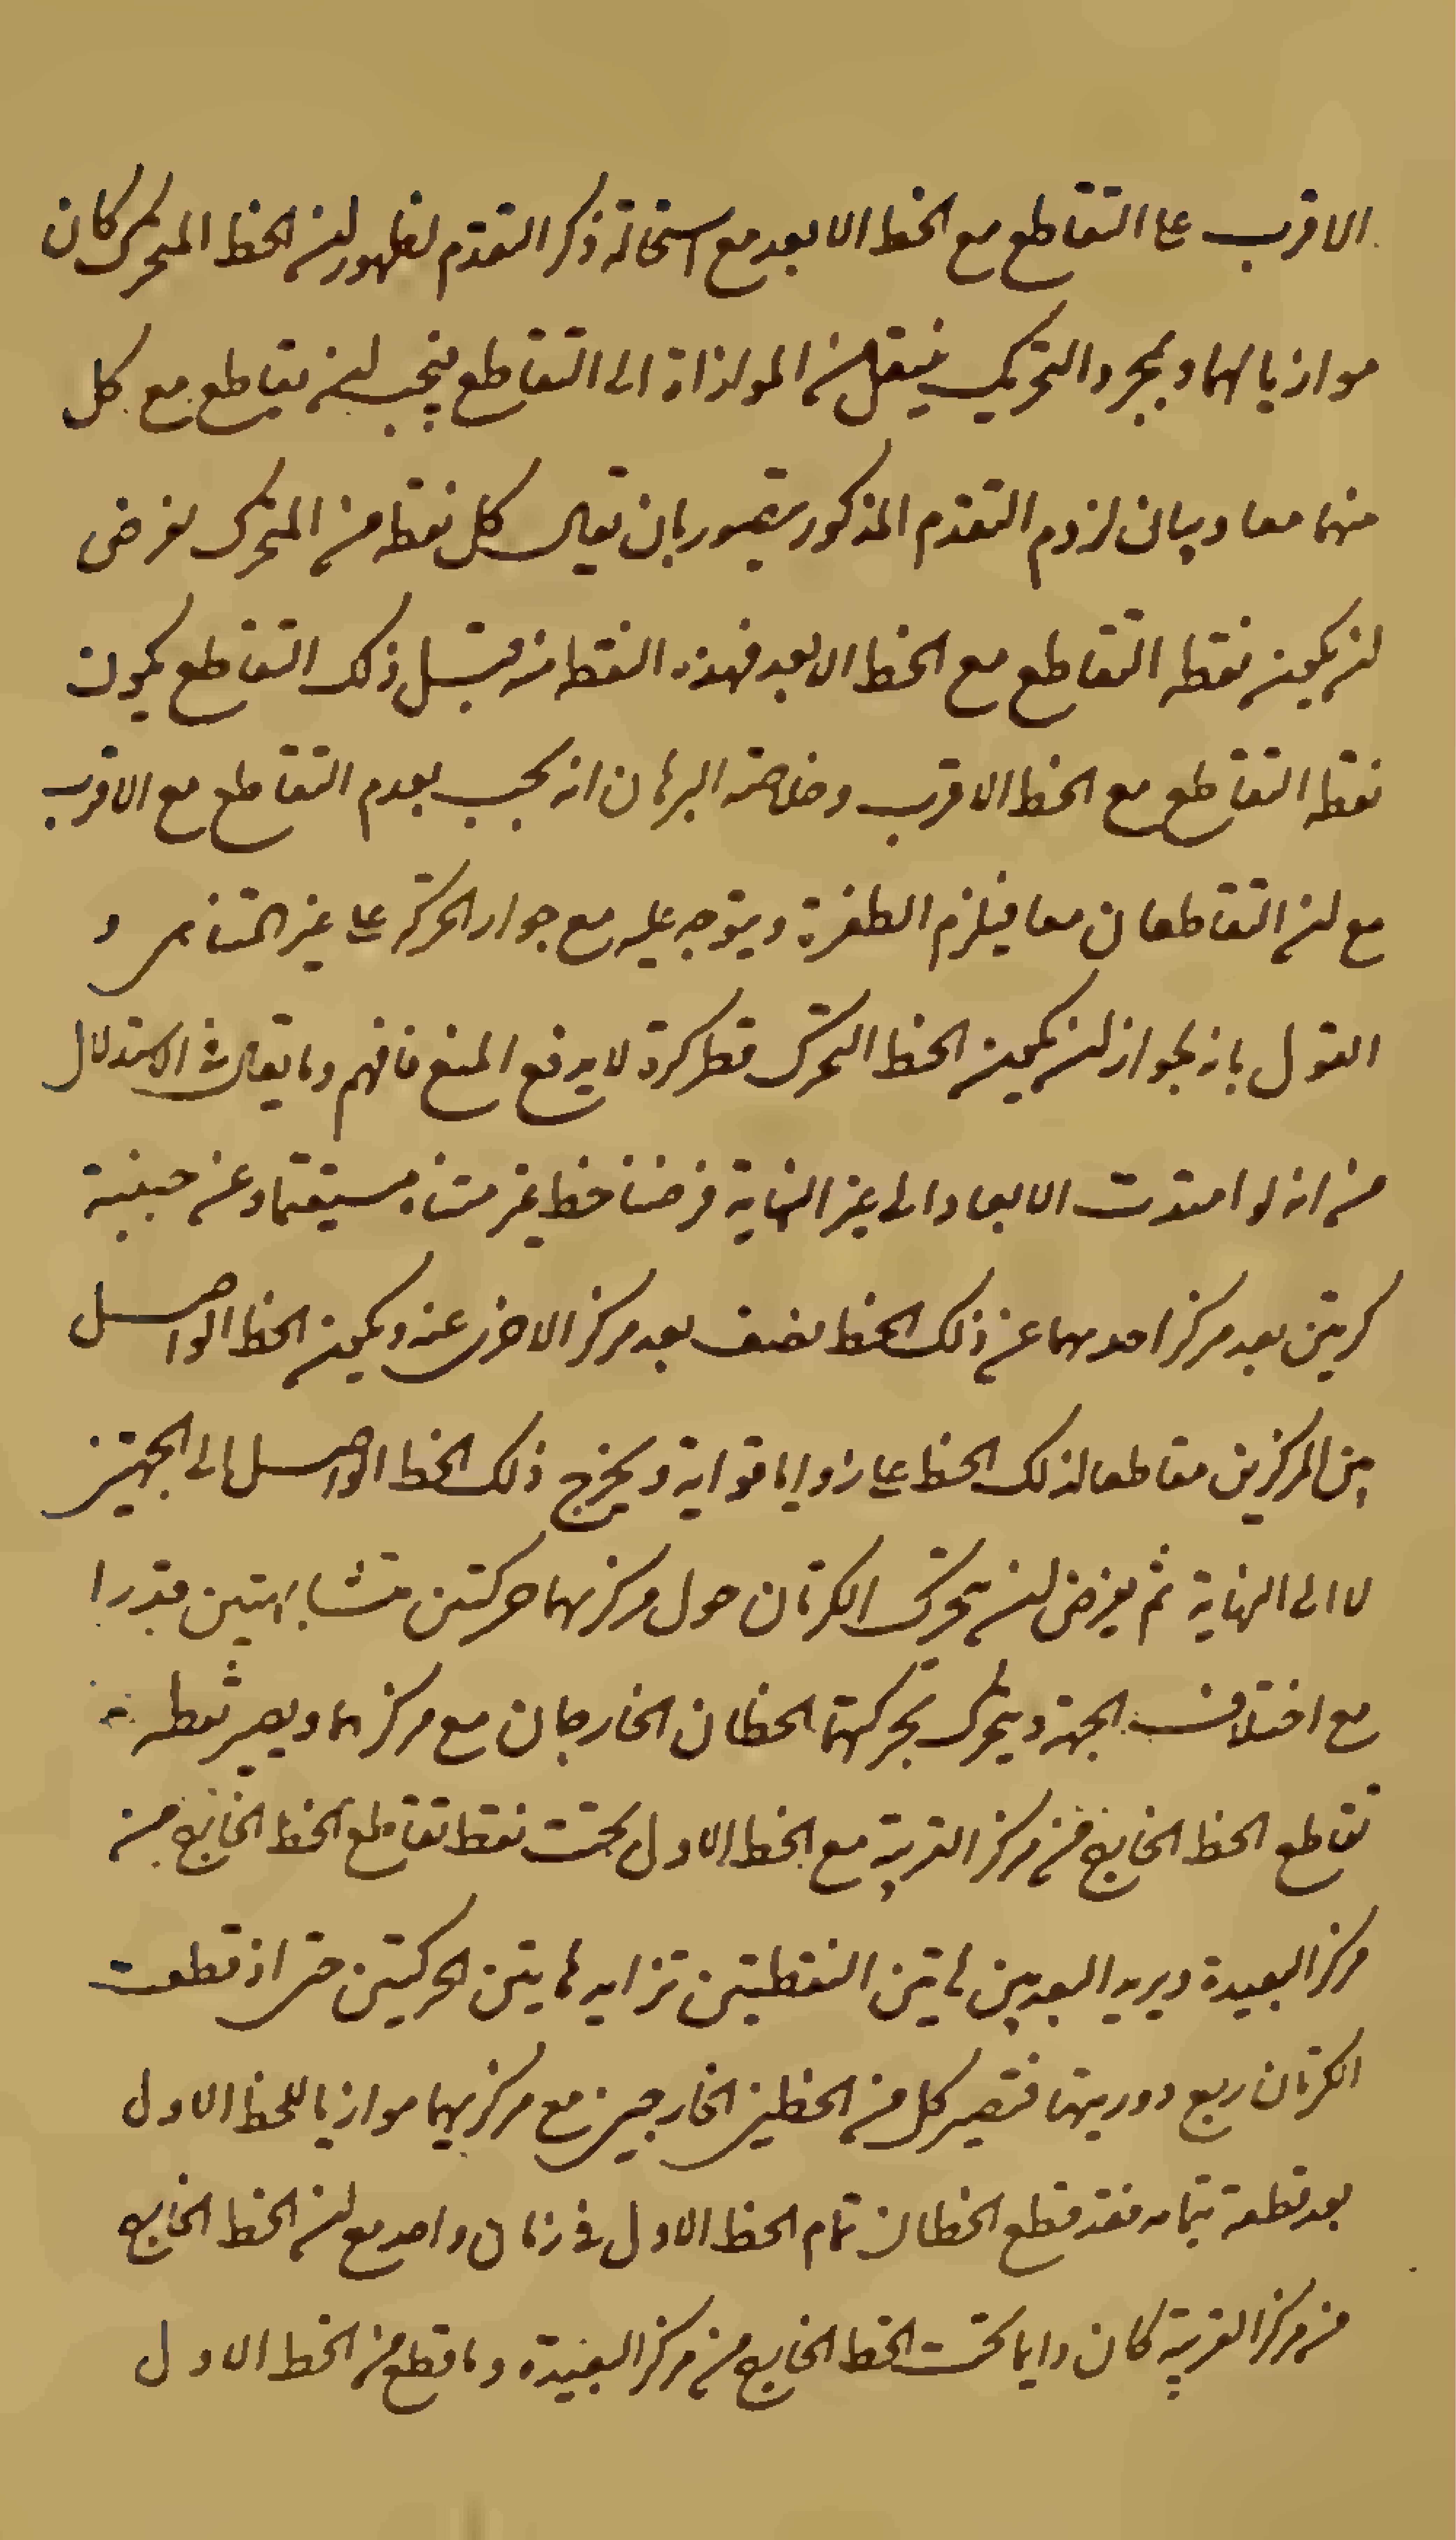 الاقرب على التقاطع مع الخط الابعد مع استحالة ذكر التقدم لظهور ان الخط المتحرك كان
موازيا لهما و بمجرد التحريك ينتقل من الموازاة الى التقاطع فيجب ان يتقاطع مع كل
منهما معا و بيان لزوم التقدم المذكور يتصور بان يقال كل نقطة من المتحرك يفرض
ان يكون نقطه التقاطع مع الخط الابعد فهذه النقطة من قبل ذلك التقاطع يكون
نقطة التقاطع مع الخط الاقرب و خلاصة البرهان انه يجب بعدم التقاطع مع الاقرب
مع ان التقاطعان معا فيلزم الطفرة و يتوجه عليه مع جواز الحركة على غير المتناهى و
القول بانه لجواز ان يكون الخط المتحرك قطر كرة لا يرفع المنع فافهم و ما يقال فى الاستدلال
من انه لو امتدت الابعاد الى غير النهاية فرضنا خطا غير متناه مستقيما و عن جنبيه
كرتين بعد مركز احدهما عن ذلك الخط نصف بعد مركز الاخرى عنه و يكون الخط الواصل
بين المركزين مقاطعا لذلك الخط على زوايا قوايم و يخرج ذلك الخط الواصل الى الجهتين
لا الى النهاية ثم يفرض ان يتحرك الكرتان حول مركزهما حركتين متشابهتين قدرا
مع اختلاف الجهة و يتحرك بحركتهما الخطان الخارجان مع مركزهما و يصير نقطه
تقاطع الخط الخارج من مركز القريبة مع الخط الاول تحت نقطة تقاطع الخط الخارج من
مركز البعيدة و يزيد البعد بين هاتين النقطتين تزايد هاتين الحركتين حتى اذ قطعت
الكرتان ربع دوريهما فتصير كل من الخطين الخارجين مع مركزيهما موازيا للخط الاول
بعد قطعه بتمامه فقد قطع الخطان تمام الخط الاول فى زمان واحد مع ان الخط الخارج
من مركز القريبة كان دايما تحت الخط الخارج من مركز البعيدة و ما قطع من الخط الاول